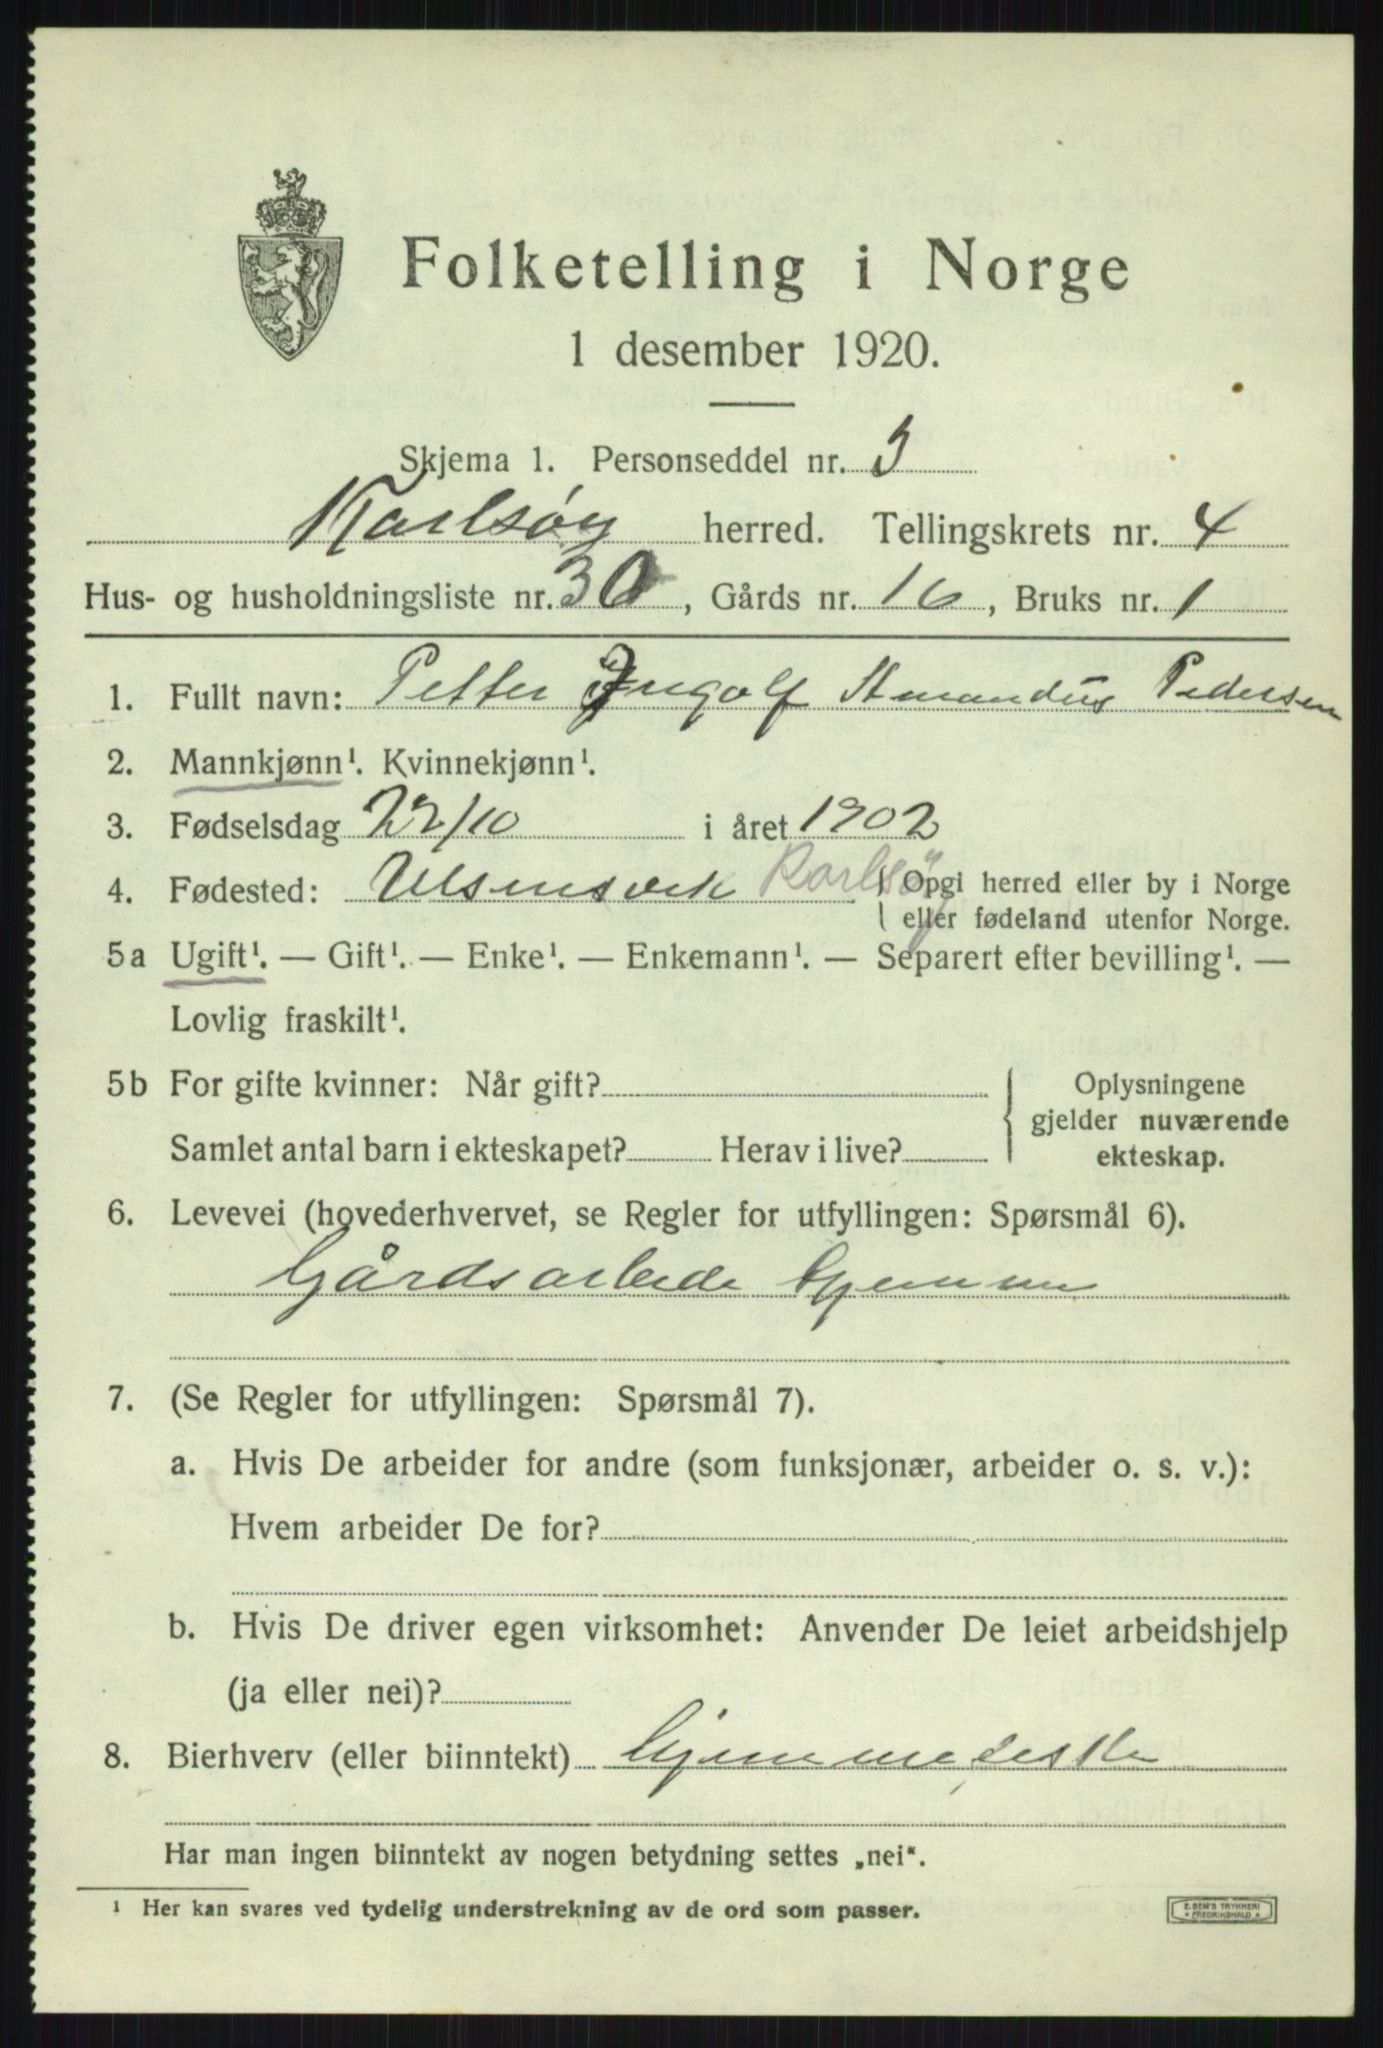 Folketelling i Norge
1 desember 1920.
Skjema 1. Personseddel nr. 3
Karlsøy herred. Tellingskrets nr. 4
Hus- og husholdningsliste nr. 30, Gårds nr. 16, Bruks nr. 1
1. Fullt navn: Petter Ingolf Amandus Pedersen
2. Mannkjønn¹. Kvinnekjønn¹.
3. Fødselsdag 22/10 i året 1902
4. Fødested: Karlsøy { Opgi herred eller by i Norge
eller fødeland utenfor Norge.
5a Ugift¹. — Gift¹. — Enke¹. — Enkemann¹. — Separert efter bevilling¹. —
Lovlig fraskilt¹.
5b For gifte kvinner: Når gift?
Samlet antal barn i ekteskapet? Herav i live?
{ Oplysningene
gjelder nuværende
ekteskap.
6. Levevei (hovederhvervet, se Regler for utfyllingen: Spørsmål 6).
Gårdsarbeide hjemme
7. (Se Regler for utfyllingen: Spørsmål 7).
a. Hvis De arbeider for andre (som funksjonær, arbeider o. s. v.):
Hvem arbeider De for?
b. Hvis De driver egen virksomhet: Anvender De leiet arbeidshjelp
(ja eller nei)?
8. Bierhverv (eller biinntekt) hjemmefiske
Har man ingen biinntekt av nogen betydning settes „nei".
¹ Her kan svares ved tydelig understrekning av de ord som passer.
E. SEM'S TRYKKERI
* FREDRIKSHALD *